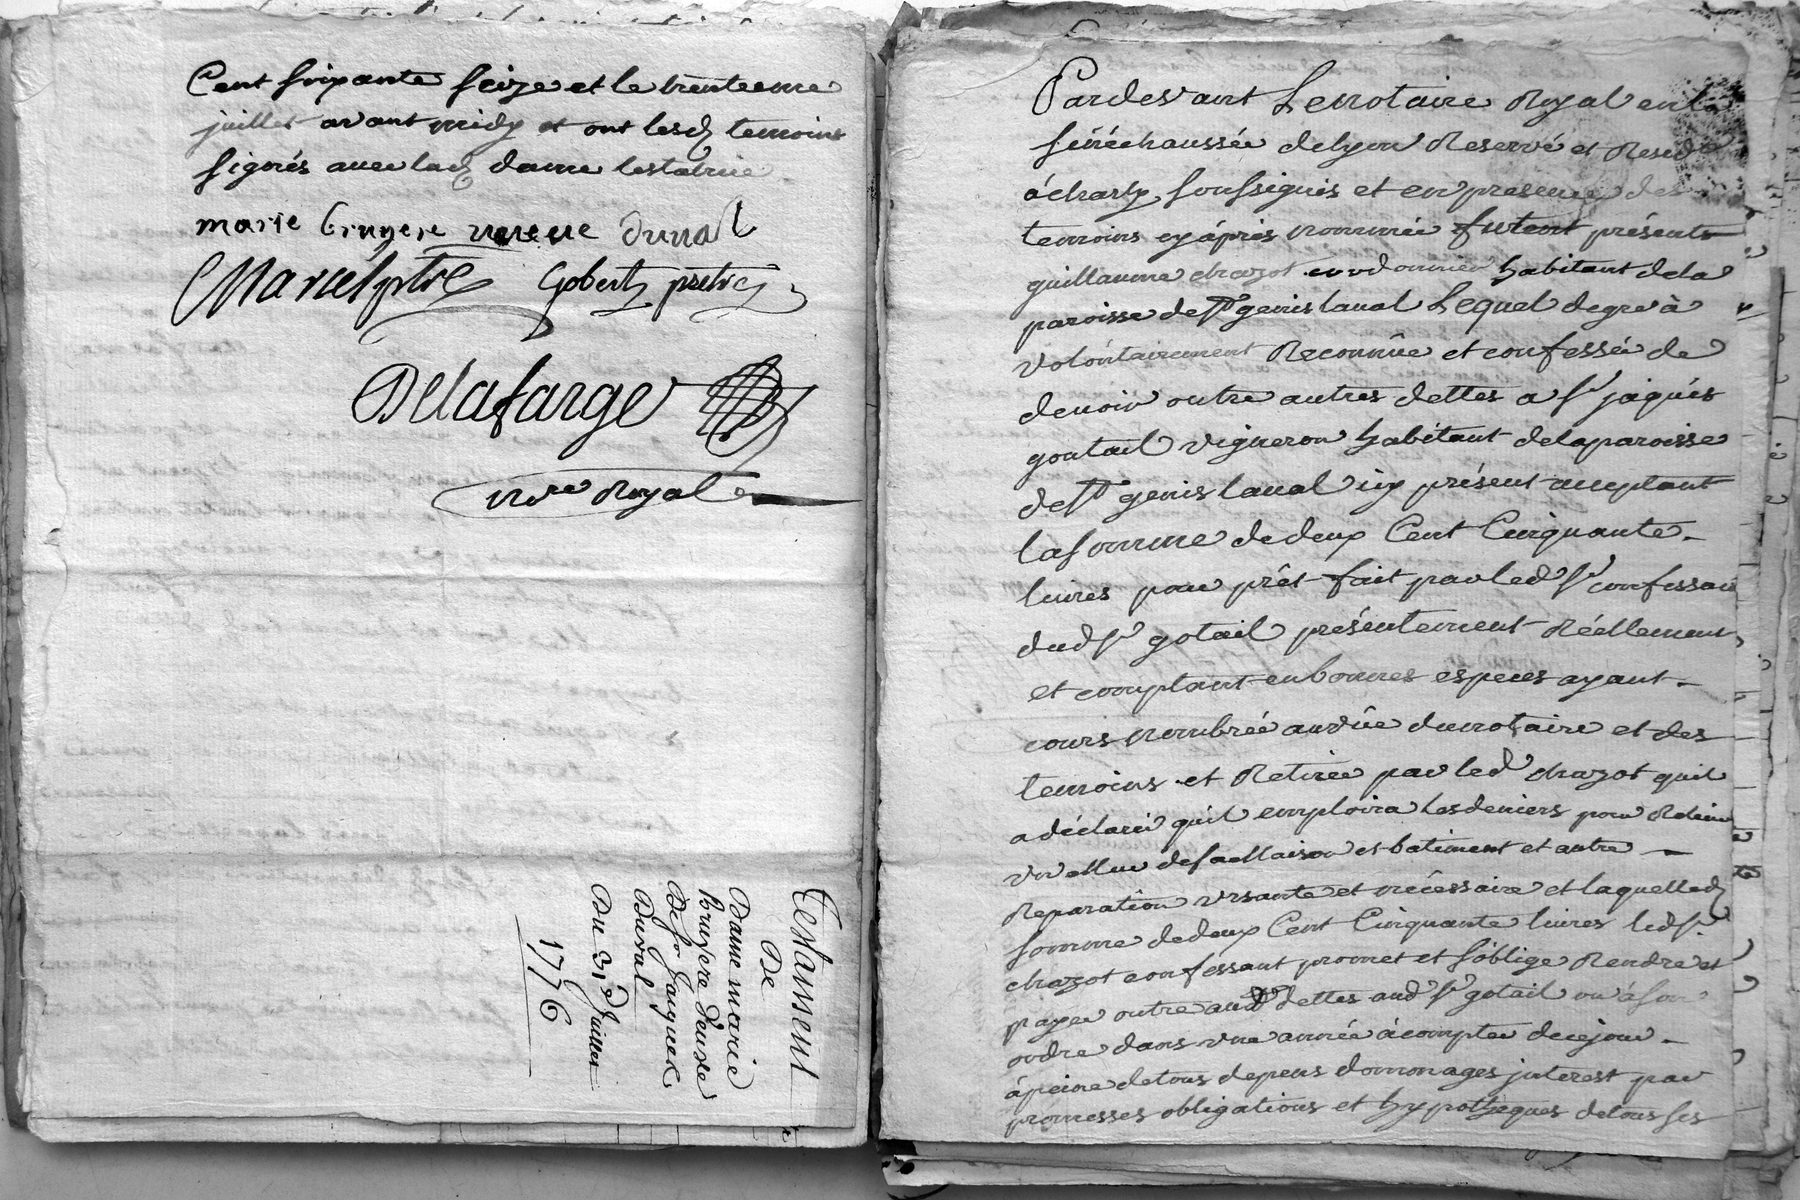 Cent soixante seize et le trente eme
juillet avant midy et ont lesd temoins
signés avec lad dame testatrice
marie bruyere veuve duval
Marcel ptre Gobert pretre
Delafarge
nore Royal
Testament
De
Dame marie
Bruyere veuve
De Sr Jacques
Duval
Du 31 Juillet
1776
Pardevant Le notaire Royal en la
sénéchaussée de lyon Reservé et Resid
à charly soussignés et en presence des
temoins cy áprés nommée futent présents
guillaume chazot cordonnier habitant de la
paroisse de st genis laval Lequel de gre à
volontairement Reconnûe et confessée de
devoir outre autres dettes a Sr jaques
goutail vigneron habitant de la paroisse
de st genis laval icy présent acceptant
la somme de deux Cent Cinquante
livres pour prêt fait par led Sr confessau
dud Sr gotail présentement Réellement
et comptant en bonnes especes ayant
cours nombrée au vûe du notaire et des
temoins et Retirée par led chazot quil
a déclaré quil emploira Les deniers pour
de sa Maison et batiment et autre
Reparation ursante et nécessaire et laquelled
somme de deux Cent Cinquante livres led Sr
chazot confessant promet et s'oblige Rendre et
payer outre dettes aud Sr gotail ou á son
ordre dans une année à compter de ce jour
à peine de tous depens dommages jnterest par
promesses obligations et hypotheques de tous ses